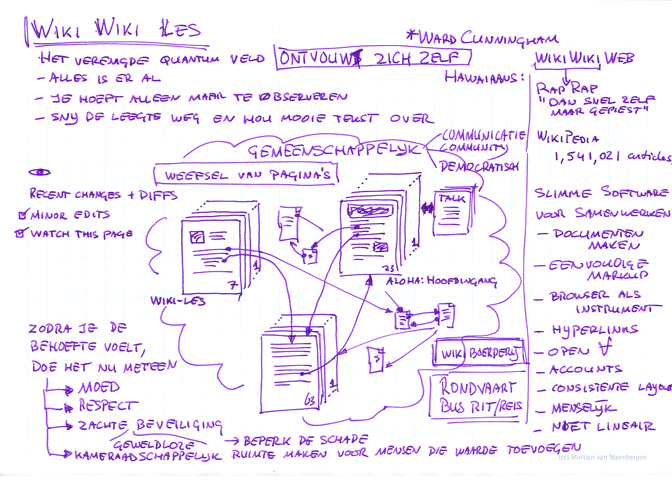 WIKI WIKI LES
*WARD CUNNINGHAM
HET VERENIGDE QUANTUM VELD ONTVOUWT ZICH ZELF
- ALLES IS ER AL
- JE HOEFT ALLEEN MAAR TE OBSERVEREN
- SNY DE LEEGTE WEG EN HOU MOOIE TEKST OVER
HAWAIIAANS:
WIKI WIKI WEB
RAP RAP
"DAN SNEL ZELF
MAAR GEPIEST"
WIKIPEDIA
1,541,021 articles
GEMEENSCHAPPELYK
COMMUNICATIE
COMMUNITY
DEMOCRATISCH
WEEFSEL VAN PAGINA'S
RECENT CHANGES + DIFFS
MINOR EDITS
WATCH THIS PAGE
TALK
7
1
23
1
WIKI-LES
ALOHA: HOOFDINGANG
63
1
SLIMME SOFTWARE
VOOR SAMENWERKEN
- DOCUMENTEN
MAKEN
- EENVOUDIGE
MARKUP
- BROWSER ALS
INSTRUMENT
- HYPERLINKS
- OPEN ∀
- ACCOUNTS
- CONSISTENTE LAYOUT
- MENSELYK
- NIET LINEAIR
WIKI BOERDERIJ
RONDVAART
BUS RIT/REIS
ZODRA JE DE
BEHOEFTE VOELT,
DOE HET NU METEEN
MOED
RESPECT
ZACHTE BEVEILIGING
GEWELDLOZE → BEPERK DE SCHADE
KAMERAADSCHAPPELYK RUIMTE MAKEN VOOR MENSEN DIE WAARDE TOEVOEGEN
(c) Martien van Steenbergen